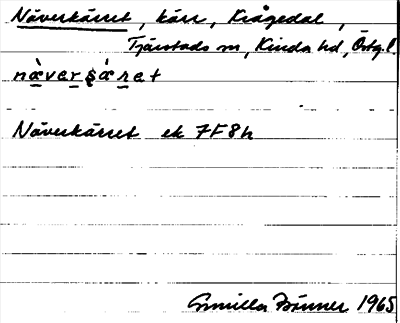 Näverkärret, kärr, Krågedal,
Tjärstads sn, Kinda hd, Östg l.
Näverkärret ek 7F8h
Gunilla 1965